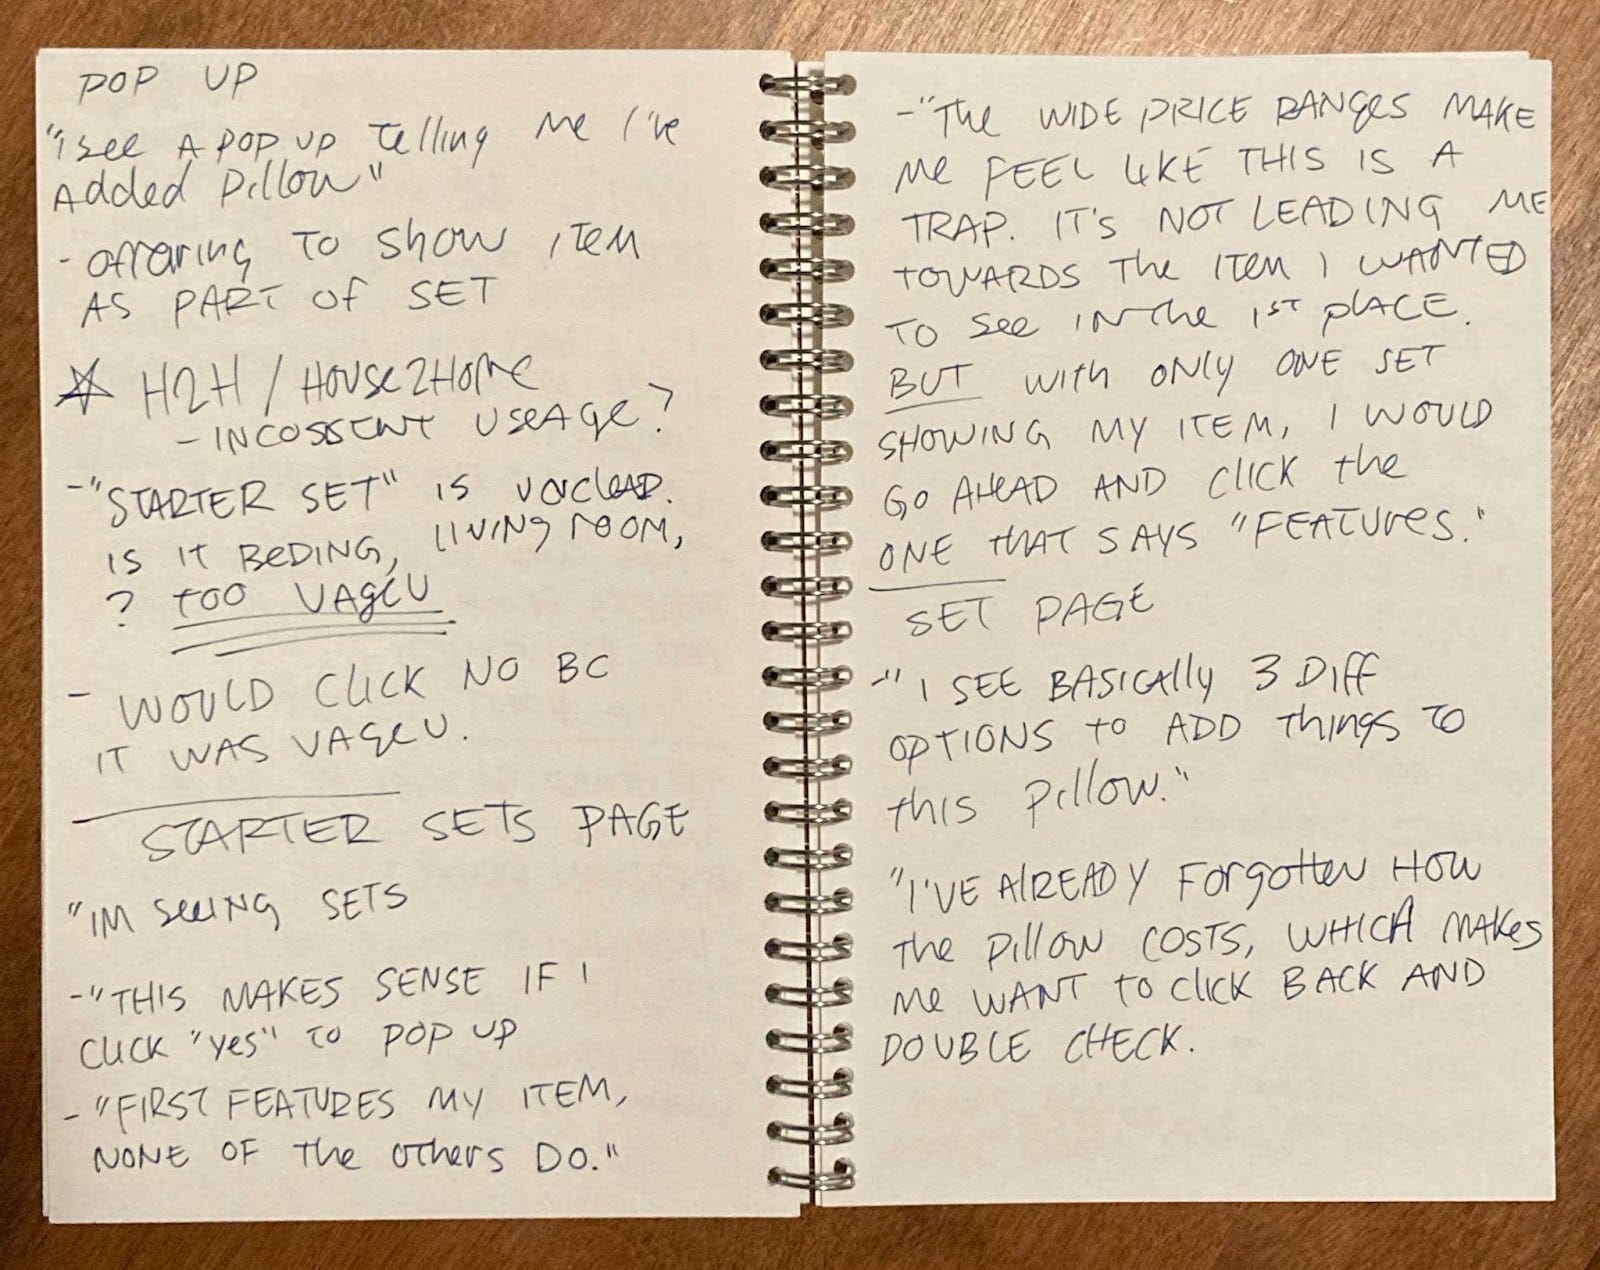 POP UP
"I see A POP UP telling Me I've
Added Pillow"
- offering TO Show ITEM
AS PART OF SET
☆ H2H / HOUSE2HOME
- INCOSSTENT USEAGE?
- "STARTER SET" IS UNCLEAR.
IS IT BEDING, LIVING ROOM,
? TOO VAGEU
- WOULD CLICK NO BC
IT WAS VAGEU.
STARTER SETS PAGE
"IM SEEING SETS
- "THIS MAKES SENSE IF I
CLICK "YES" TO POP UP
- "FIRST FEATURES MY ITEM,
NONE OF The OTHERS DO."
- "The WIDE PRICE RANGES MAKE
ME FEEL LIKE THIS IS A
TRAP. IT'S NOT LEADING ME
TOWARDS The ITEM I WANTED
TO See IN The 1ST PLACE.
BUT with ONLY ONE SET
SHOWING MY ITEM, I WOULD
GO AHEAD AND CLICK the
ONE THAT SAYS "FEATURES."
SET PAGE
- "I SEE BASICALLY 3 DIFF
OPTIONS to ADD Things TO
this Pillow."
"I'VE AlREADY Forgotten HOW
The Pillow COSTS, WHICH MAKES
Me WANT to CLICK BACK AND
DOUBLE CHECK.